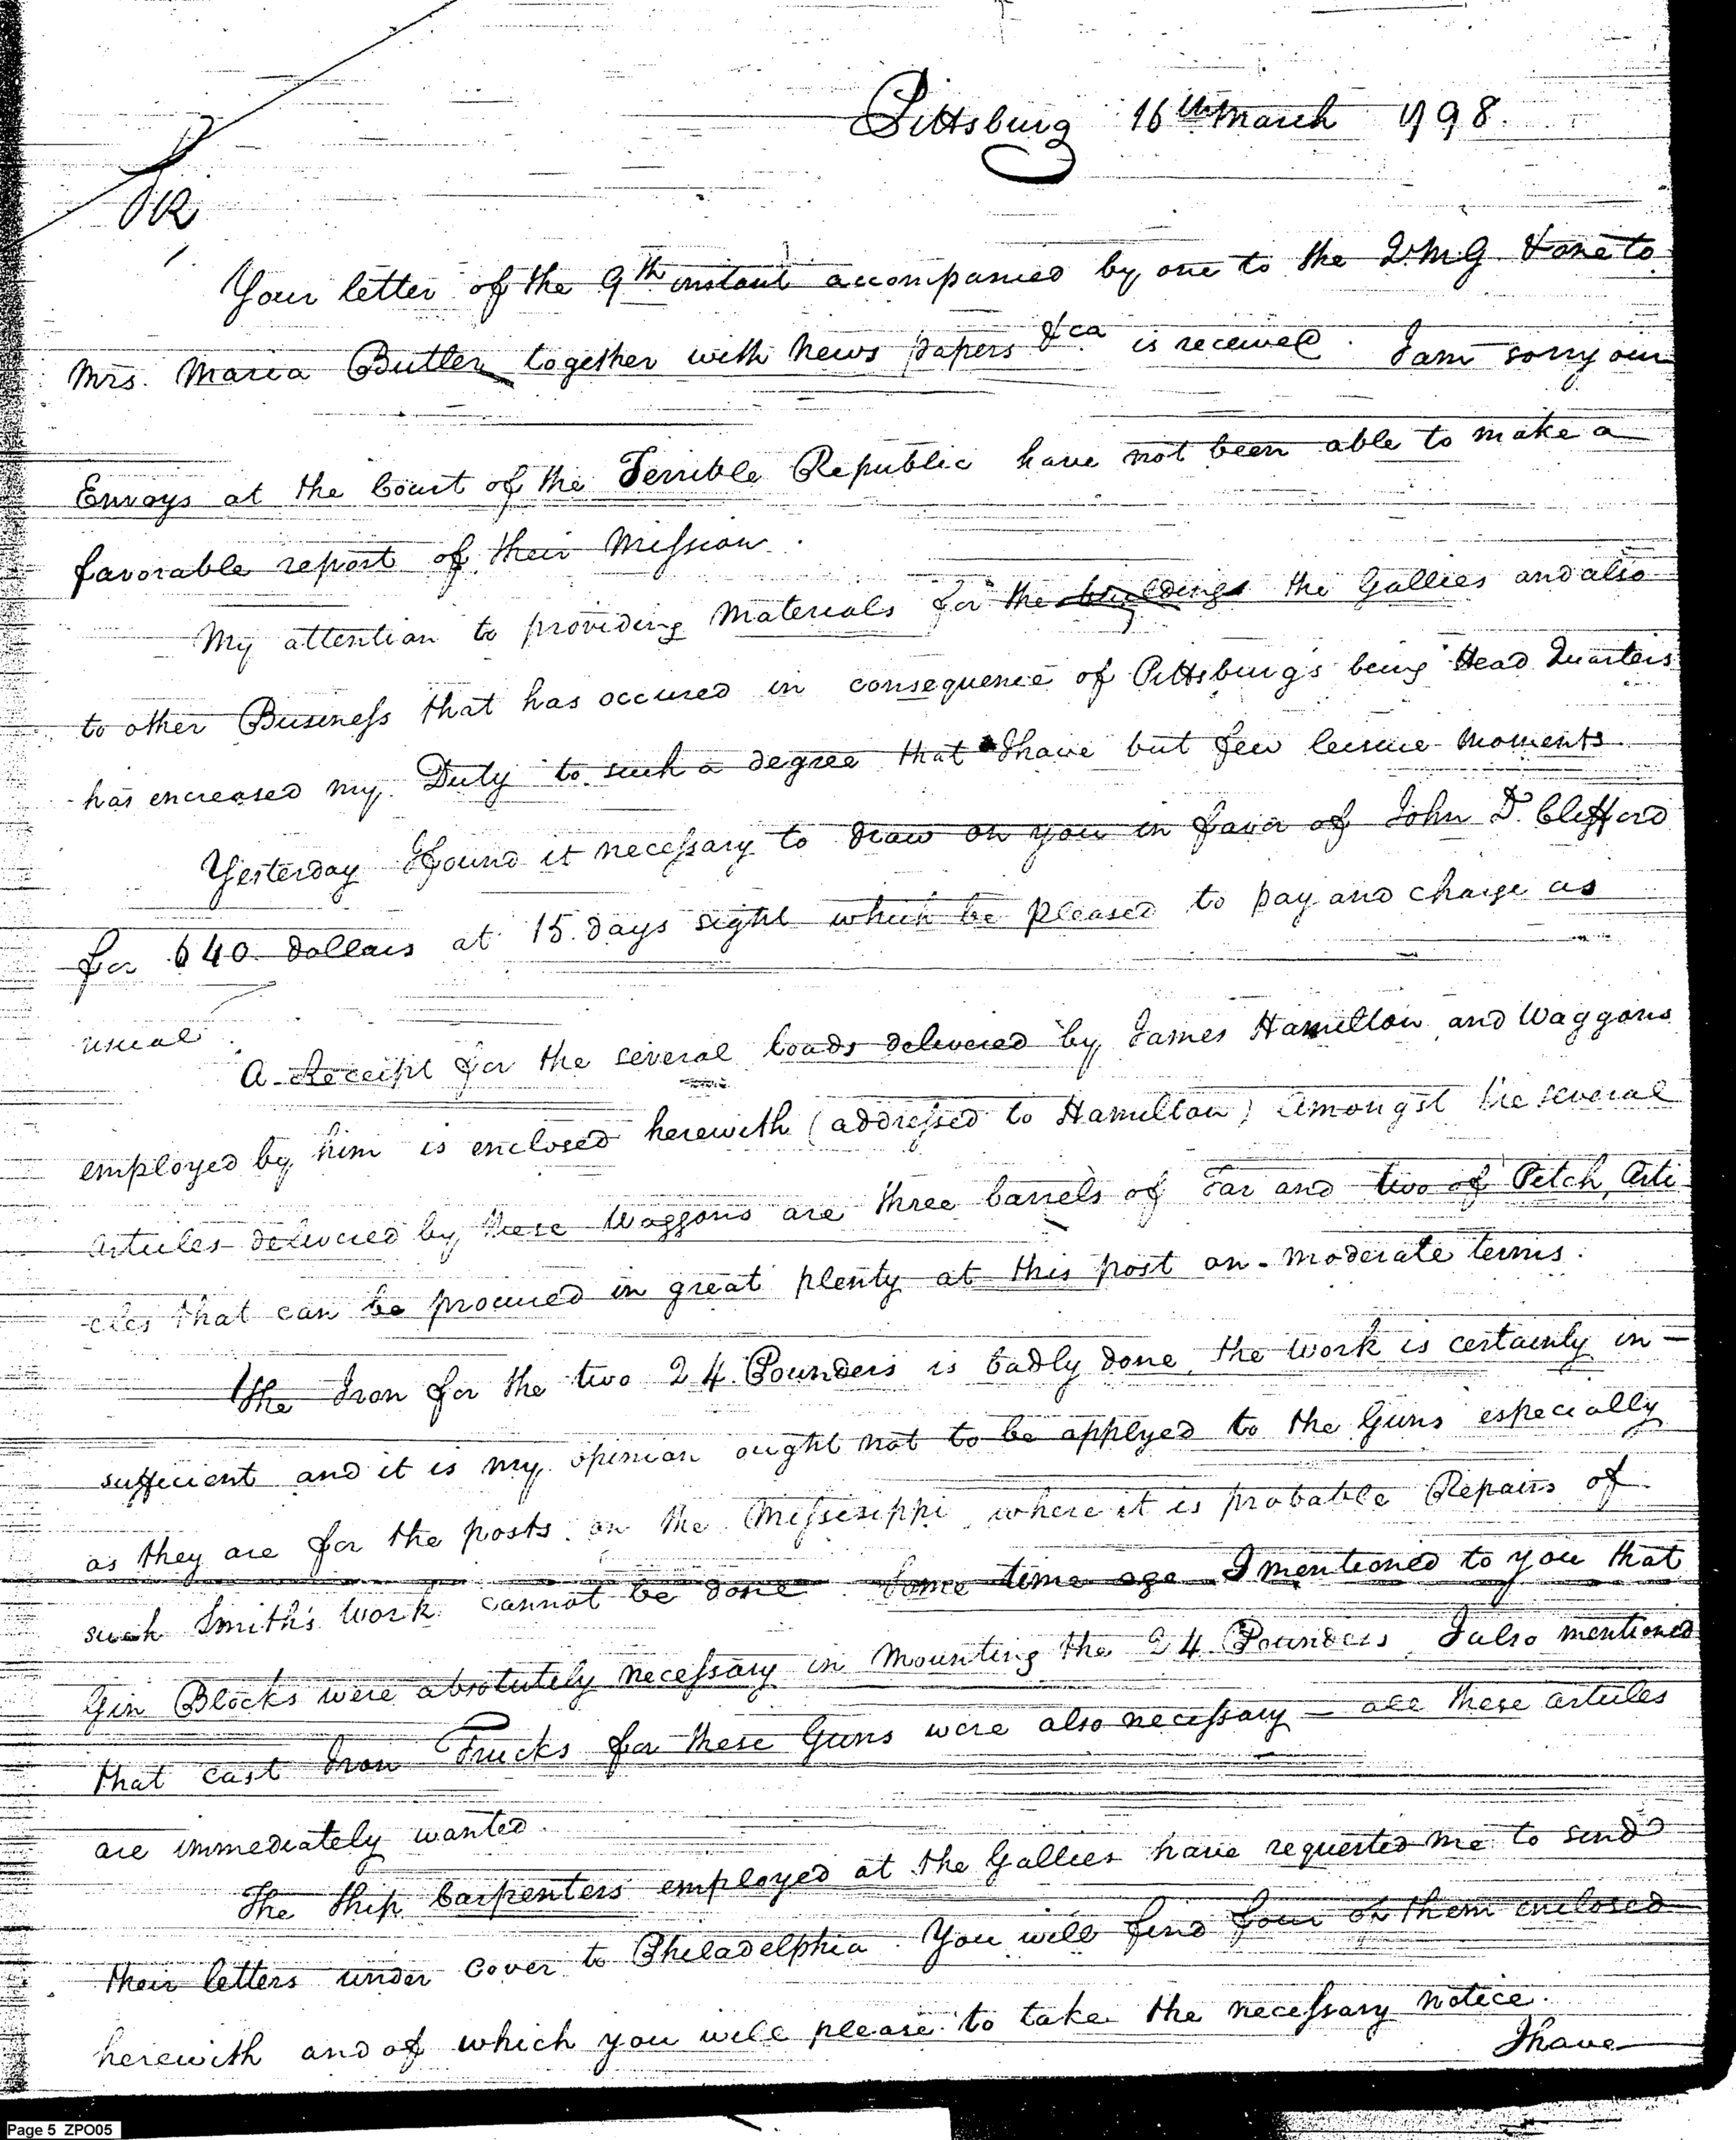 Pittsburg 16th March 1798.
Sir
Your letter of the 9th instant accompanied by one to the Q.M.G. & one to
Mrs. Maria Butler together with News papers &ca is received. I am sorry our
Envoys at the Court of the Terrible Republic have not been able to make a
favorable report of their Mission.
My attention to providing Materials for the buildings the Gallies and also
to other Business that has occured in consequence of Pittsburg's being Head Quarters
has encreased my Duty to such a degree that I have but few leisure moments.
Yesterday I found it necessary to draw on you in favor of John D. Clifford
for 640 dollars at 15 days sight which be pleased to pay and charge as
usual.
A Receipt for the several loads delivered by James Hamilton and Waggons
employed by him is enclosed herewith (addressed to Hamilton) Amongst the several
articles delivered by these Waggons are three barrels of Tar and two of Pitch, Arti
-cles that can be procured in great plenty at this post on moderate terms.
The Iron for the two 24 Pounders is badly done, the work is certainly in-
sufficient and it is my opinion ought not to be applyed to the Guns especially
as they are for the posts on the Missisippi where it is probable Repairs of
such Smith's Work cannot be done. Some time ago I mentioned to you that
Gin Blocks were absolutely necessary in Mounting the 24 Pounders, I also mentioned
that cast Iron Trucks for these Guns were also necessary — all these articles
are immediately wanted.
The Ship Carpenters employed at the Gallies have requested me to send
their letters under cover to Philadelphia. You will find four of them enclosed
herewith and of which you will please to take the necessary notice.
I have
Page 5 ZPO05